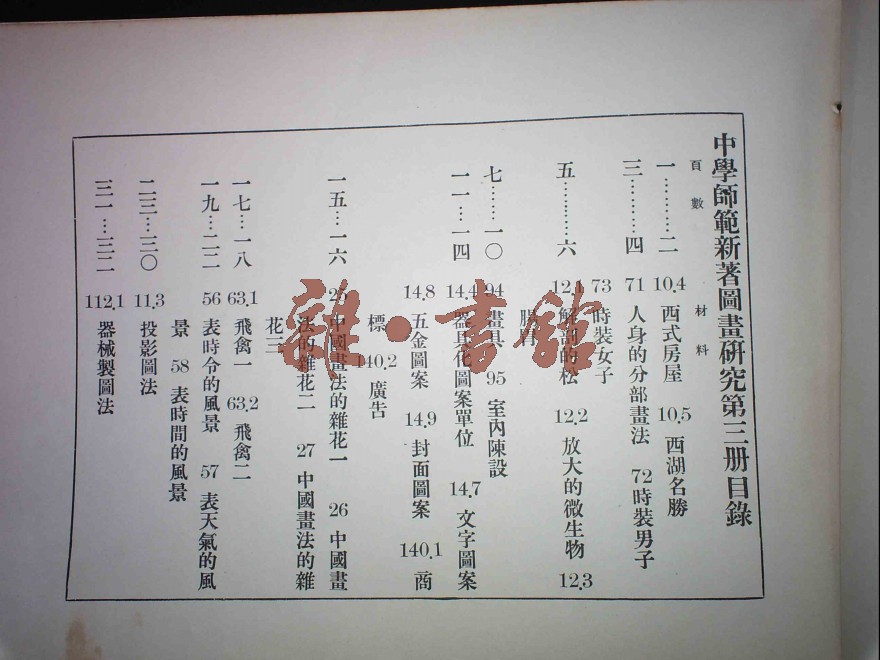 中學師範新著圖畫研究第三册目錄
頁數 材料
一………二 10.4 西式房屋 10.5 西湖名勝
三………四 71 人身的分部畫法 72 時裝男子
73 時裝女子
五………六 12.1 解剖的松 12.2 放大的微生物 12.3
七……一〇 94 畫具 95 室內陳設
一一…一四 14.4 器具化圖案單位 14.7 文字圖案
14.8 五金圖案 14.9 封面圖案 140.1 商
標 140.2 廣告
一五…一六 25 中國畫法的雜花一 26 中國畫
法的雜花二 27 中國畫法的雜
花三
一七…一八 63.1 飛禽一 63.2 飛禽二
一九…二二 56 表時令的風景 57 表天氣的風
景 58 表時間的風景
二三…三〇 11.3 投影圖法
三一…三二 112.1 器械製圖法
雜·書館